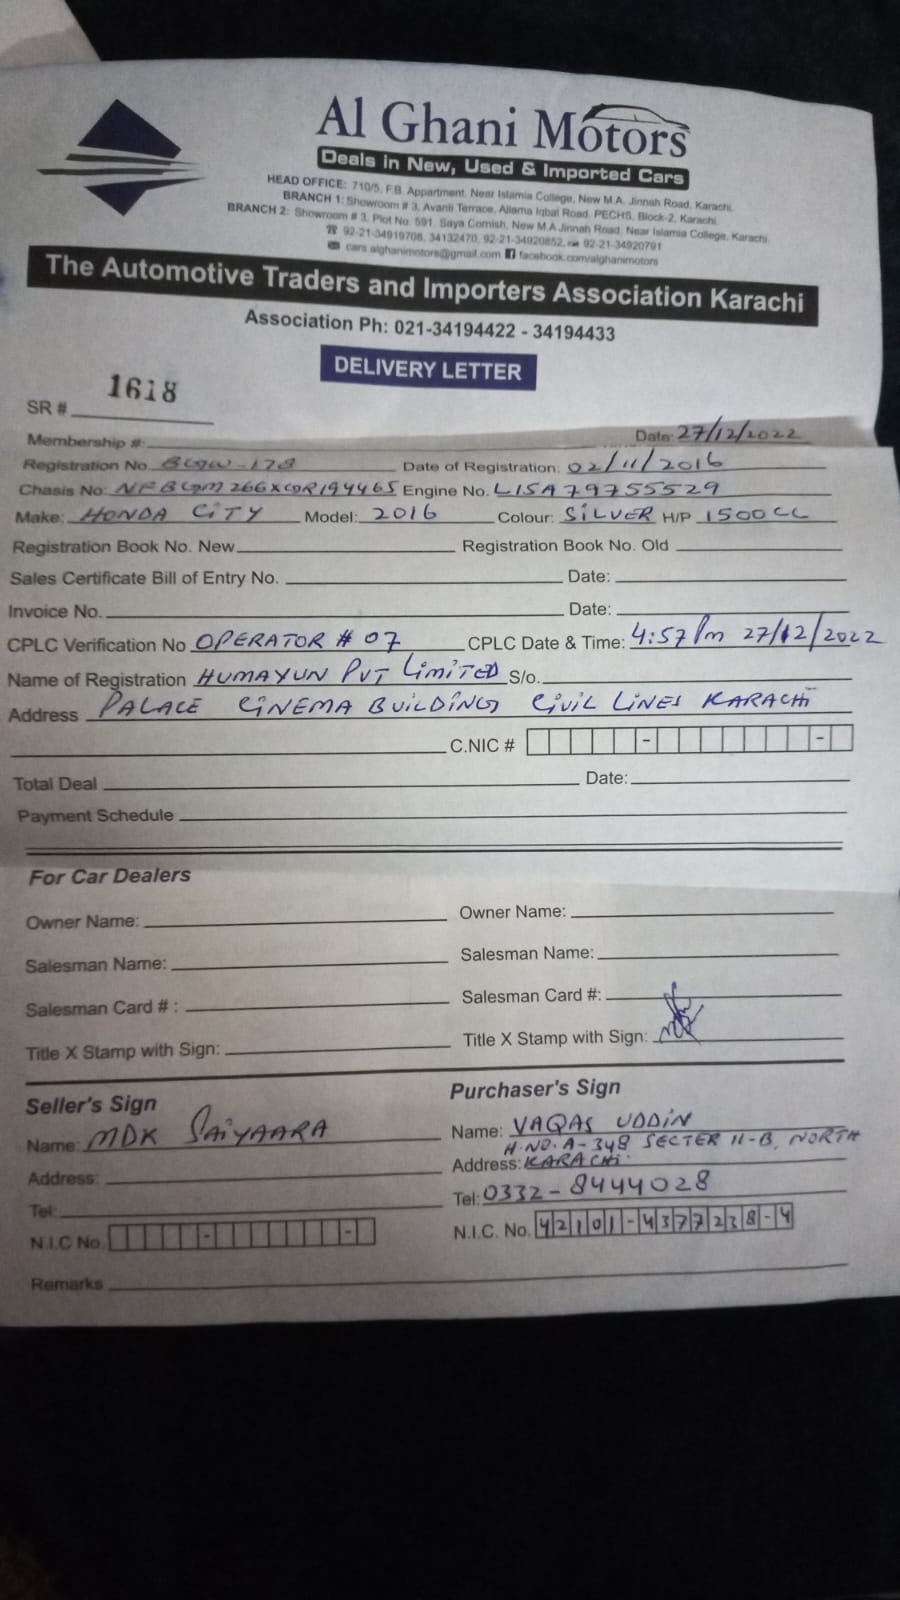 Al Ghani Motors
Deals in New, Used & Imported Cars
HEAD OFFICE: 710/5, F.B. Appartment, Near Islamia College, New M.A. Jinnah Road, Karachi.
BRANCH 1: Showroom # 3, Avanti Terrace, Allama Iqbal Road, PECHS, Block-2, Karachi.
BRANCH 2: Showroom # 3, Plot No. 591, Saya Cornish, New M.A Jinnah Road, Near Islamia College, Karachi.
92-21-34919708, 34132470, 92-21-34920852, 92-21-34920791
cars.alghanimotors@gmail.com facebook.com/alghanimotors
The Automotive Traders and Importers Association Karachi
Association Ph: 021-34194422 - 34194433
DELIVERY LETTER
SR # 1618
Membership #: Date: 27/12/2022
Registration No. -178 Date of Registration: 02/11/2016
Chasis No: Engine No. L15A79755529
Make: HONDA CITY Model: 2016 Colour: SILVER H/P 1500CC
Registration Book No. New Registration Book No. Old
Sales Certificate Bill of Entry No. Date:
Invoice No. Date:
CPLC Verification No OPERATOR # 07 CPLC Date & Time: 4:57 Pm 27/12/2022
Name of Registration HUMAYUN PVT LIMITED S/o.
Address PALACE CINEMA BUILDING CIVIL LINES KARACHI
C.NIC # - -
Total Deal Date:
Payment Schedule
For Car Dealers
Owner Name: Owner Name:
Salesman Name: Salesman Name:
Salesman Card # : Salesman Card #:
Title X Stamp with Sign: Title X Stamp with Sign:
Seller's Sign Purchaser's Sign
Name: MDK SAIYAARA Name: VAQAS UDDIN
H.NO.A-348 SECTER 11-B, NORTH
Address: Address: KARACHI.
Tel: Tel: 0332-8444028
N.I.C No. - - N.I.C. No. 42101-4377238-4
Remarks